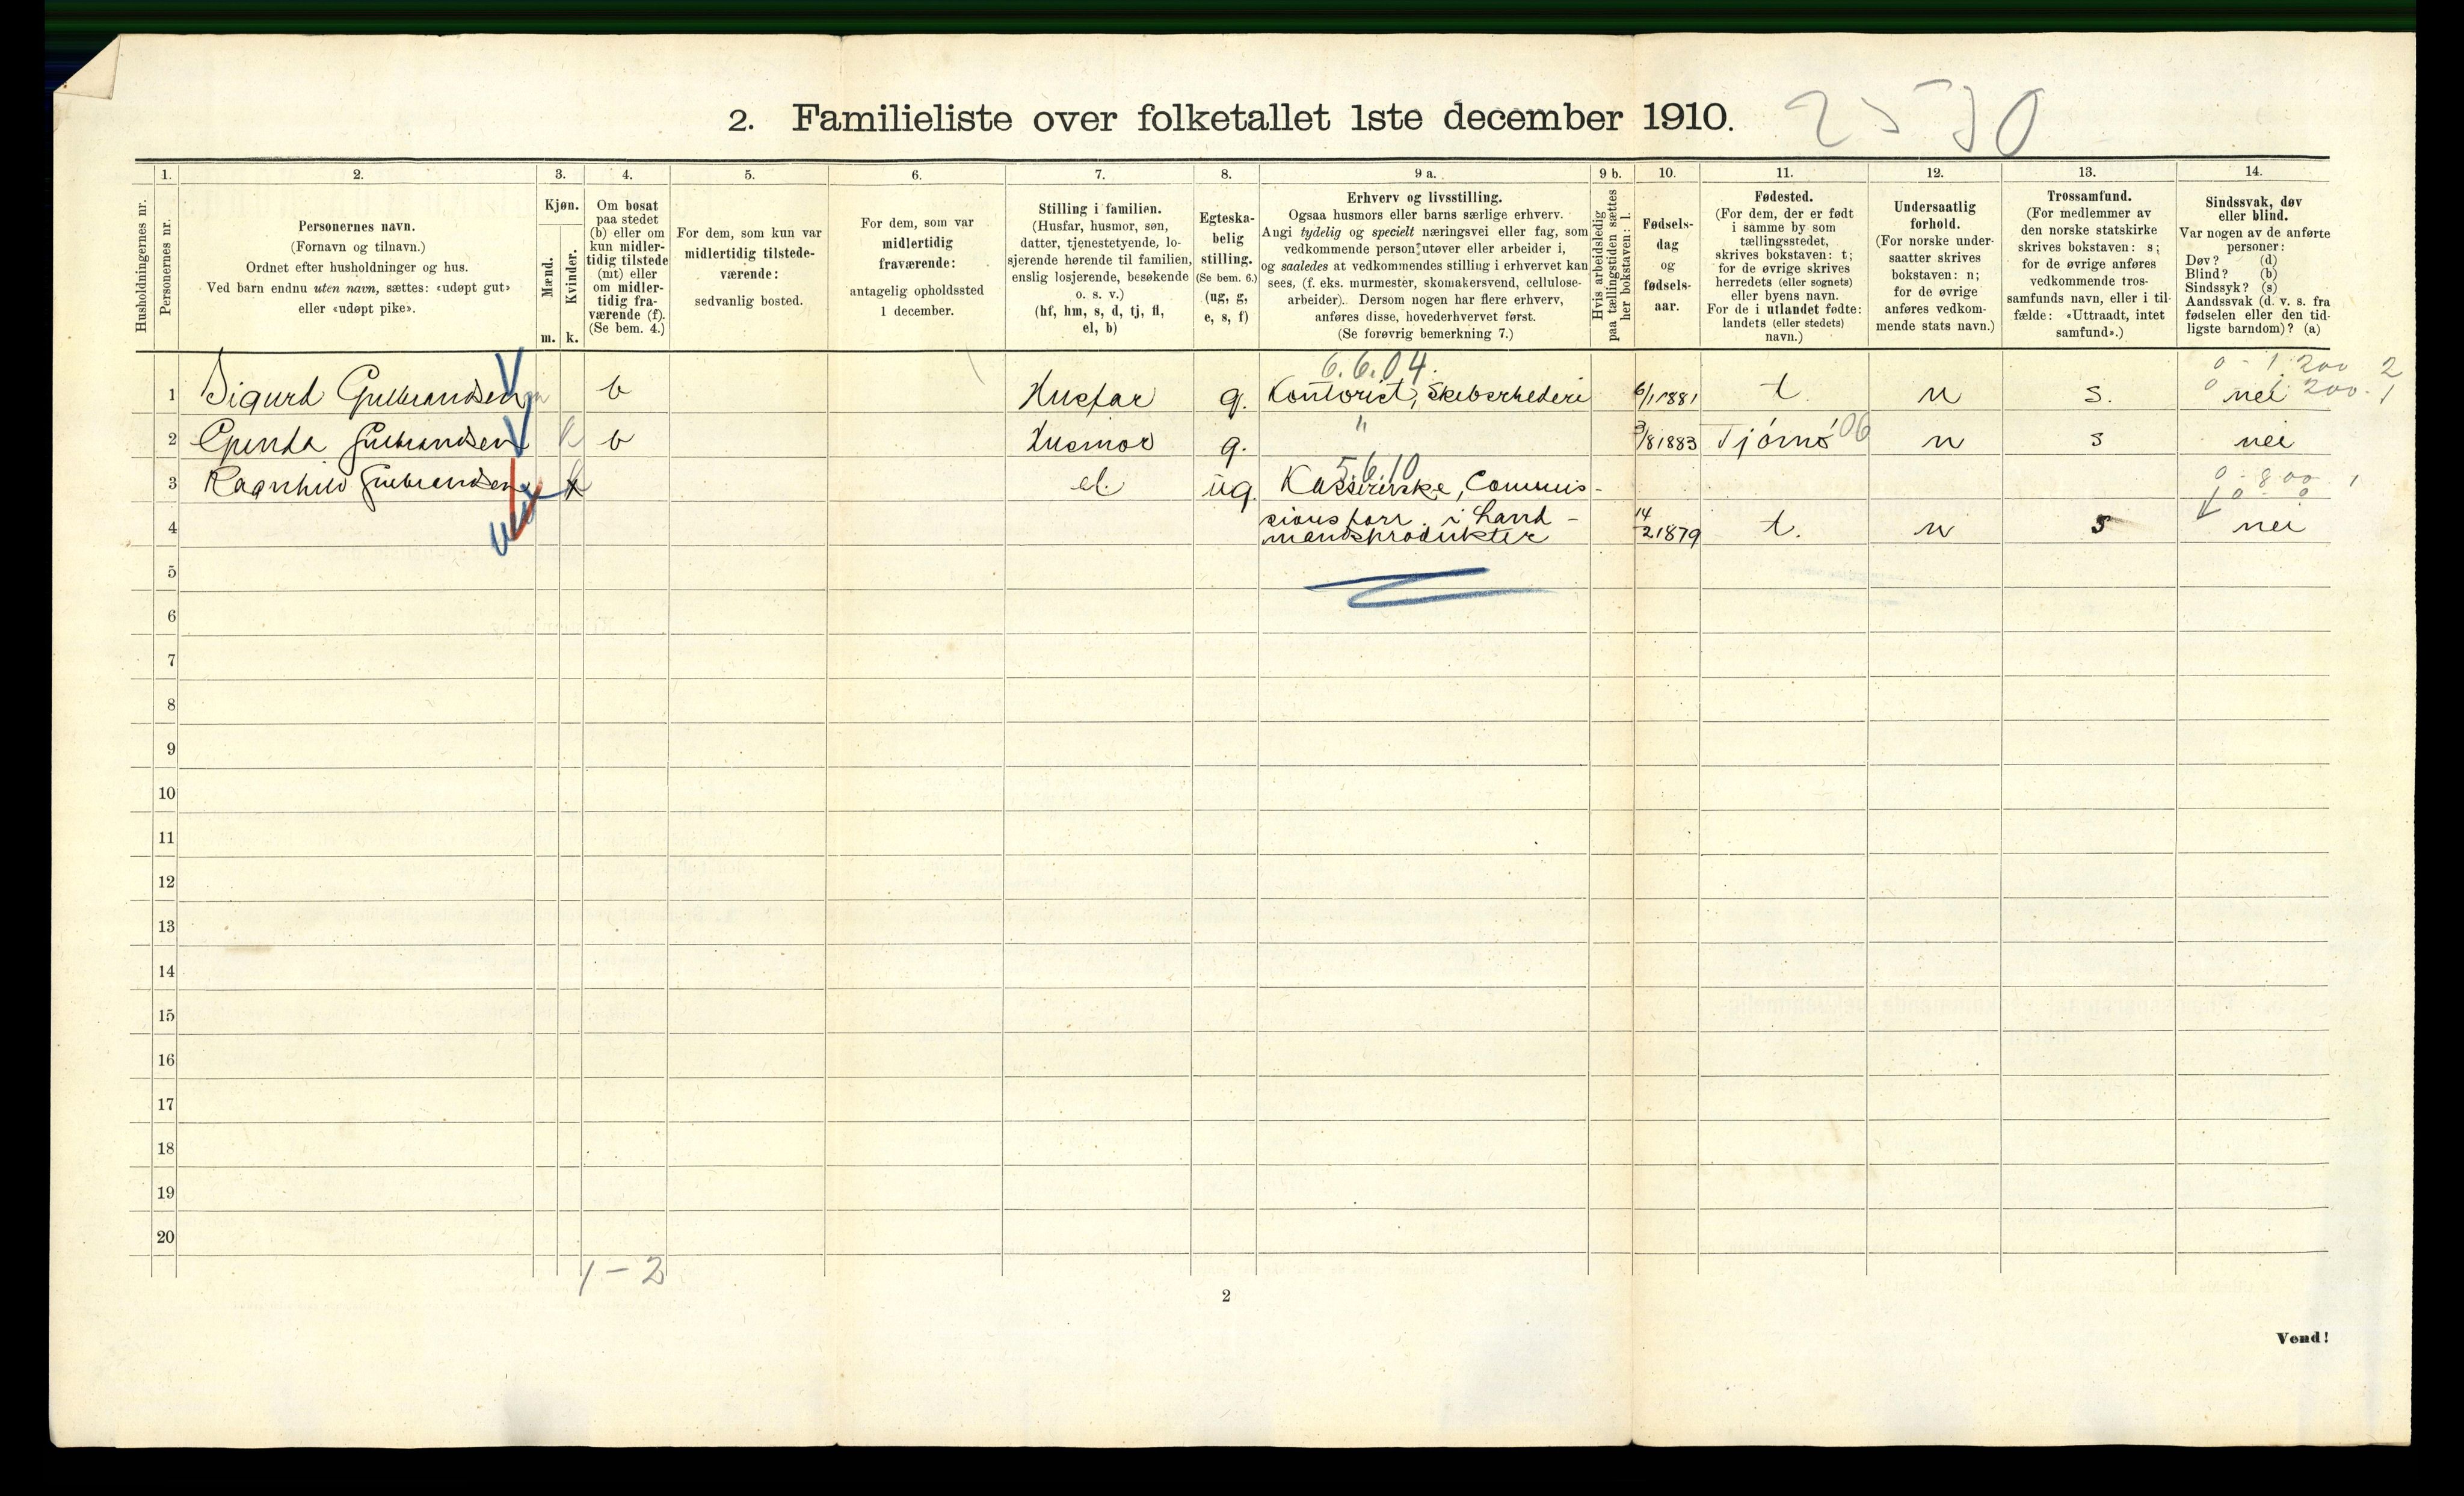 2. Familieliste over folketallet 1ste december 1910. 2530
1.
2.
3.
4.
5.
6.
7.
8.
9 a.
9 b.
10.
11.
12.
13.
14.
Husholdningernes nr.
Personernes nr.
Personernes navn.
(Fornavn og tilnavn.)
Ordnet efter husholdninger og hus.
Ved barn endnu uten navn, sættes: «udøpt gut»
eller «udøpt pike».
Kjøn.
Mænd.
Kvinder.
m. k.
Om bosat
paa stedet
(b) eller om
kun midler-
tidig tilstede
(mt) eller
om midler-
tidig fra-
værende (f).
(Se bem. 4.)
For dem, som kun var
midlertidig tilstede-
værende:
sedvanlig bosted.
For dem, som var
midlertidig
fraværende:
antagelig opholdssted
1 december.
Stilling i familien.
(Husfar, husmor, søn,
datter, tjenestetyende, lo-
sjerende hørende til familien,
enslig losjerende, besøkende
o. s. v.)
(hf, hm, s, d, tj, fl,
el, b)
Egteska-
belig
stilling.
(Se bem. 6.)
(ug, g,
e, s, f)
Erhverv og livsstilling.
Ogsaa husmors eller barns særlige erhverv.
Angi tydelig og specielt næringsvei eller fag, som
vedkommende person utøver eller arbeider i,
og saaledes at vedkommendes stilling i erhvervet kan
sees, (f. eks. murmester, skomakersvend, cellulose-
arbeider). Dersom nogen har flere erhverv,
anføres disse, hovederhvervet først.
(Se forøvrig bemerkning 7.)
Hvis arbeidsledig
paa tællingstiden sættes
her bokstaven: l.
Fødsels-
dag
og
fødsels-
aar.
Fødested.
(For dem, der er født
i samme by som
tællingsstedet,
skrives bokstaven: t;
for de øvrige skrives
herredets (eller sognets)
eller byens navn.
For de i utlandet fødte:
landets (eller stedets)
navn.)
Undersaatlig
forhold.
(For norske under-
saatter skrives
bokstaven: n;
for de øvrige
anføres vedkom-
mende stats navn.)
Trossamfund.
(For medlemmer av
den norske statskirke
skrives bokstaven: s;
for de øvrige anføres
vedkommende tros-
samfunds navn, eller i til-
fælde: «Uttraadt, intet
samfund».)
Sindssvak, døv
eller blind.
Var nogen av de anførte
personer:
Døv? (d)
Blind? (b)
Sindssyk? (s)
Aandssvak (d. v. s. fra
fødselen eller den tid-
ligste barndom)? (a)
6.6.04. 0 - 1.200 2
1 Sigurd Gulbrandsen m b Husfar g. Kontorist, Skibsrhederi 6/1 1881 t. n s. nei 0 1.200. 1
2 Gunda Gulbrandsen k b Husmor g. " 3/8 1883 Tjømø 06 n s nei
5.6.10 0 - 800 1
3 Ragnhild Gulbrandsen k el. ug. Kasserirske, Commis-
4 sionsforr. i Land- 14/2 1879 t. n s nei
mandsprodukter
5
6
7
8
9
10
11
12
13
14
15
16
17
18
19
20
1 - 2
2
Vend!